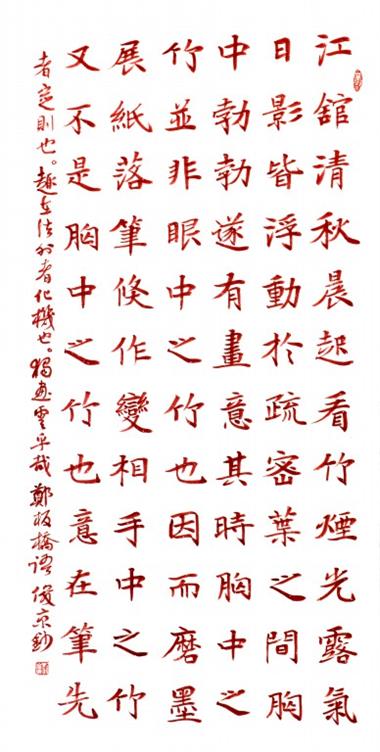 江舘清秋晨起看竹煙光露氣
日影皆浮動於疏密葉之間胸
中勃勃遂有畫意其時胸中之
竹並非眼中之竹也因而磨墨
展紙落筆倏作變相手中之竹
又不是胸中之竹也意在筆先
者定則也。趣在法外者化機也。獨畫雲乎哉 鄭板橋語 俊京鈔